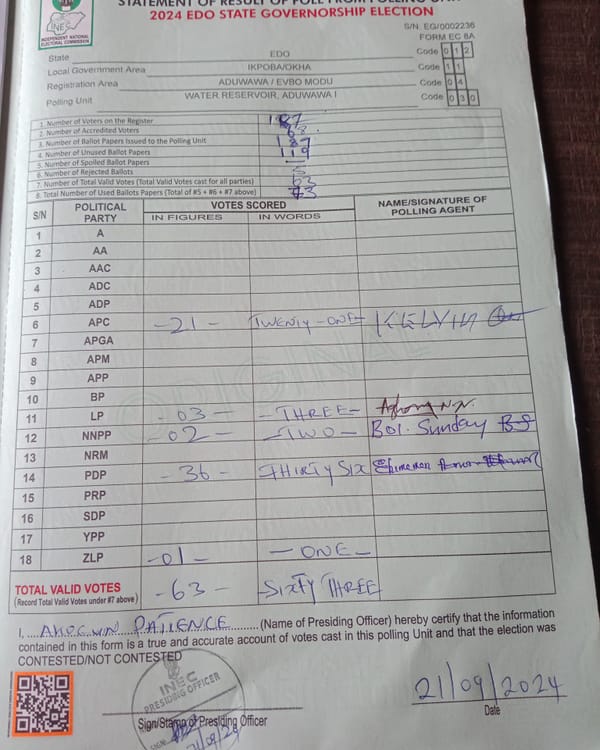 STATEMENT OF RESULT OF POLL FROM POLLING UNIT
2024 EDO STATE GOVERNORSHIP ELECTION
INEC
INDEPENDENT NATIONAL ELECTORAL COMMISSION
S/N. EG/0002236
FORM EC 8A
State EDO Code 0 1 2
Local Government Area IKPOBA/OKHA Code 1 1
Registration Area ADUWAWA / EVBO MODU Code 0 4
Polling Unit WATER RESERVOIR, ADUWAWA I Code 0 3 0
1. Number of Voters on the Register 187
2. Number of Accredited Voters 68
3. Number of Ballot Papers Issued to the Polling Unit 187
4. Number of Unused Ballot Papers 119
5. Number of Spoiled Ballot Papers
6. Number of Rejected Ballots 5
7. Number of Total Valid Votes (Total Valid Votes cast for all parties) 63
8. Total Number of Used Ballots Papers (Total of #5 + #6 + #7 above)
S/N POLITICAL PARTY VOTES SCORED NAME/SIGNATURE OF POLLING AGENT
IN FIGURES IN WORDS
1 A
2 AA
3 AAC
4 ADC
5 ADP
6 APC -21- TWENTY-ONE- KELVIN
7 APGA
8 APM
9 APP
10 BP
11 LP -03- -THREE-
12 NNPP -02- -TWO- BOI. Sunday
13 NRM
14 PDP -36- THIRTY SIX
15 PRP
16 SDP
17 YPP
18 ZLP -01- -ONE-
TOTAL VALID VOTES -63- SIXTY THREE
(Record Total Valid Votes under #7 above)
I, PATIENCE (Name of Presiding Officer) hereby certify that the information
contained in this form is a true and accurate account of votes cast in this polling Unit and that the election was
CONTESTED/NOT CONTESTED
INEC
PRESIDING OFFICER
21/09/2024
Sign/Stamp of Presiding Officer
Date